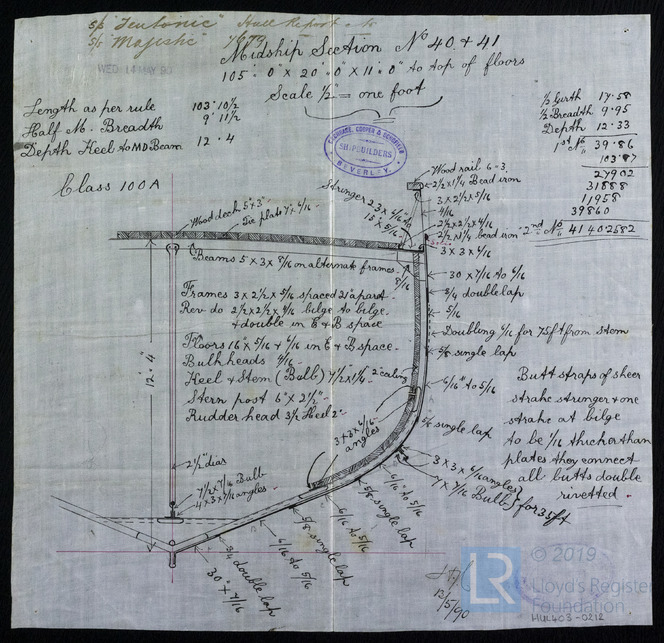 S/S "Teutonic" Hull Report
S/S "Majestic"
WED 14 MAY 90
Midship Section No 40 + 41
105'.0" X 20'.0" X 11'.0" to top of floors
Scale 1/2" = one foot
Length as per rule 103' 10/2
Half M. Breadth 9' 11/2
Depth Keel to MD Beam 12.4
1/2 Girth 17.58
1/2 Breadth 9.95
Depth 12.33
1st No 39.86
103.87
27902
31888
11958
39860
2nd No 41402582
COCHRANE, COOPER & SCHOFIELD
SHIPBUILDERS
BEVERLEY.
Class 100A
Wood rail 6-3
2 1/2 x 1 1/4 Bead iron
3 x 2 1/2 x 5/16
4/16
2 1/2 x 2 1/2 x 4/16
2 1/2 x 1 1/4 bead iron
3 x 3 x 6/16
Stringer 23 x 6/16 to
15 x 5/16
Wood deck 5" x 3"
Tie plate 7" x 6/16
Beams 5 x 3 x 5/16 on alternate frames
5/16
30 x 7/16 to 6/16
3/4 double lap
5/16
Doubling 4/16 for 75ft from stem
5/8 single lap
6/16" to 5/16
5/8 single lap
Frames 3 x 2 1/2 x 5/16 spaced 21" apart
Rev do 2 1/2 x 2 1/2 x 4/16 bilge to bilge
+ double in E & B space
Floors 16" x 5/16 + 6/16 in E & B space
Bulkheads 4/16
Keel & Stem (Bulb) 7 1/2 x 1 1/4
2" ceiling
Stern post 6" x 2 1/2"
Rudder head 3 1/2 Heel 2"
12'.4"
Butt straps of sheer
strake stringer + one
strake at bilge
to be 1/16 thicker than
plates they connect
all butts double
rivetted
3 x 3 x 6/16
angles
3 x 3 x 6/16 angles
7 x 7/16 Bulb
for 35ft
2 1/2" dias
7 1/2 x 7/16 Bulb
4 x 3 x 7/16 angles
6/16 to 5/16
5/8 single lap
6/16 to 5/16
5/8 single lap
6/16 to 5/16
3/4 double lap
30" x 7/16
12/5/90
LR
© 2019
Lloyd's Register
Foundation
HUL403-0212